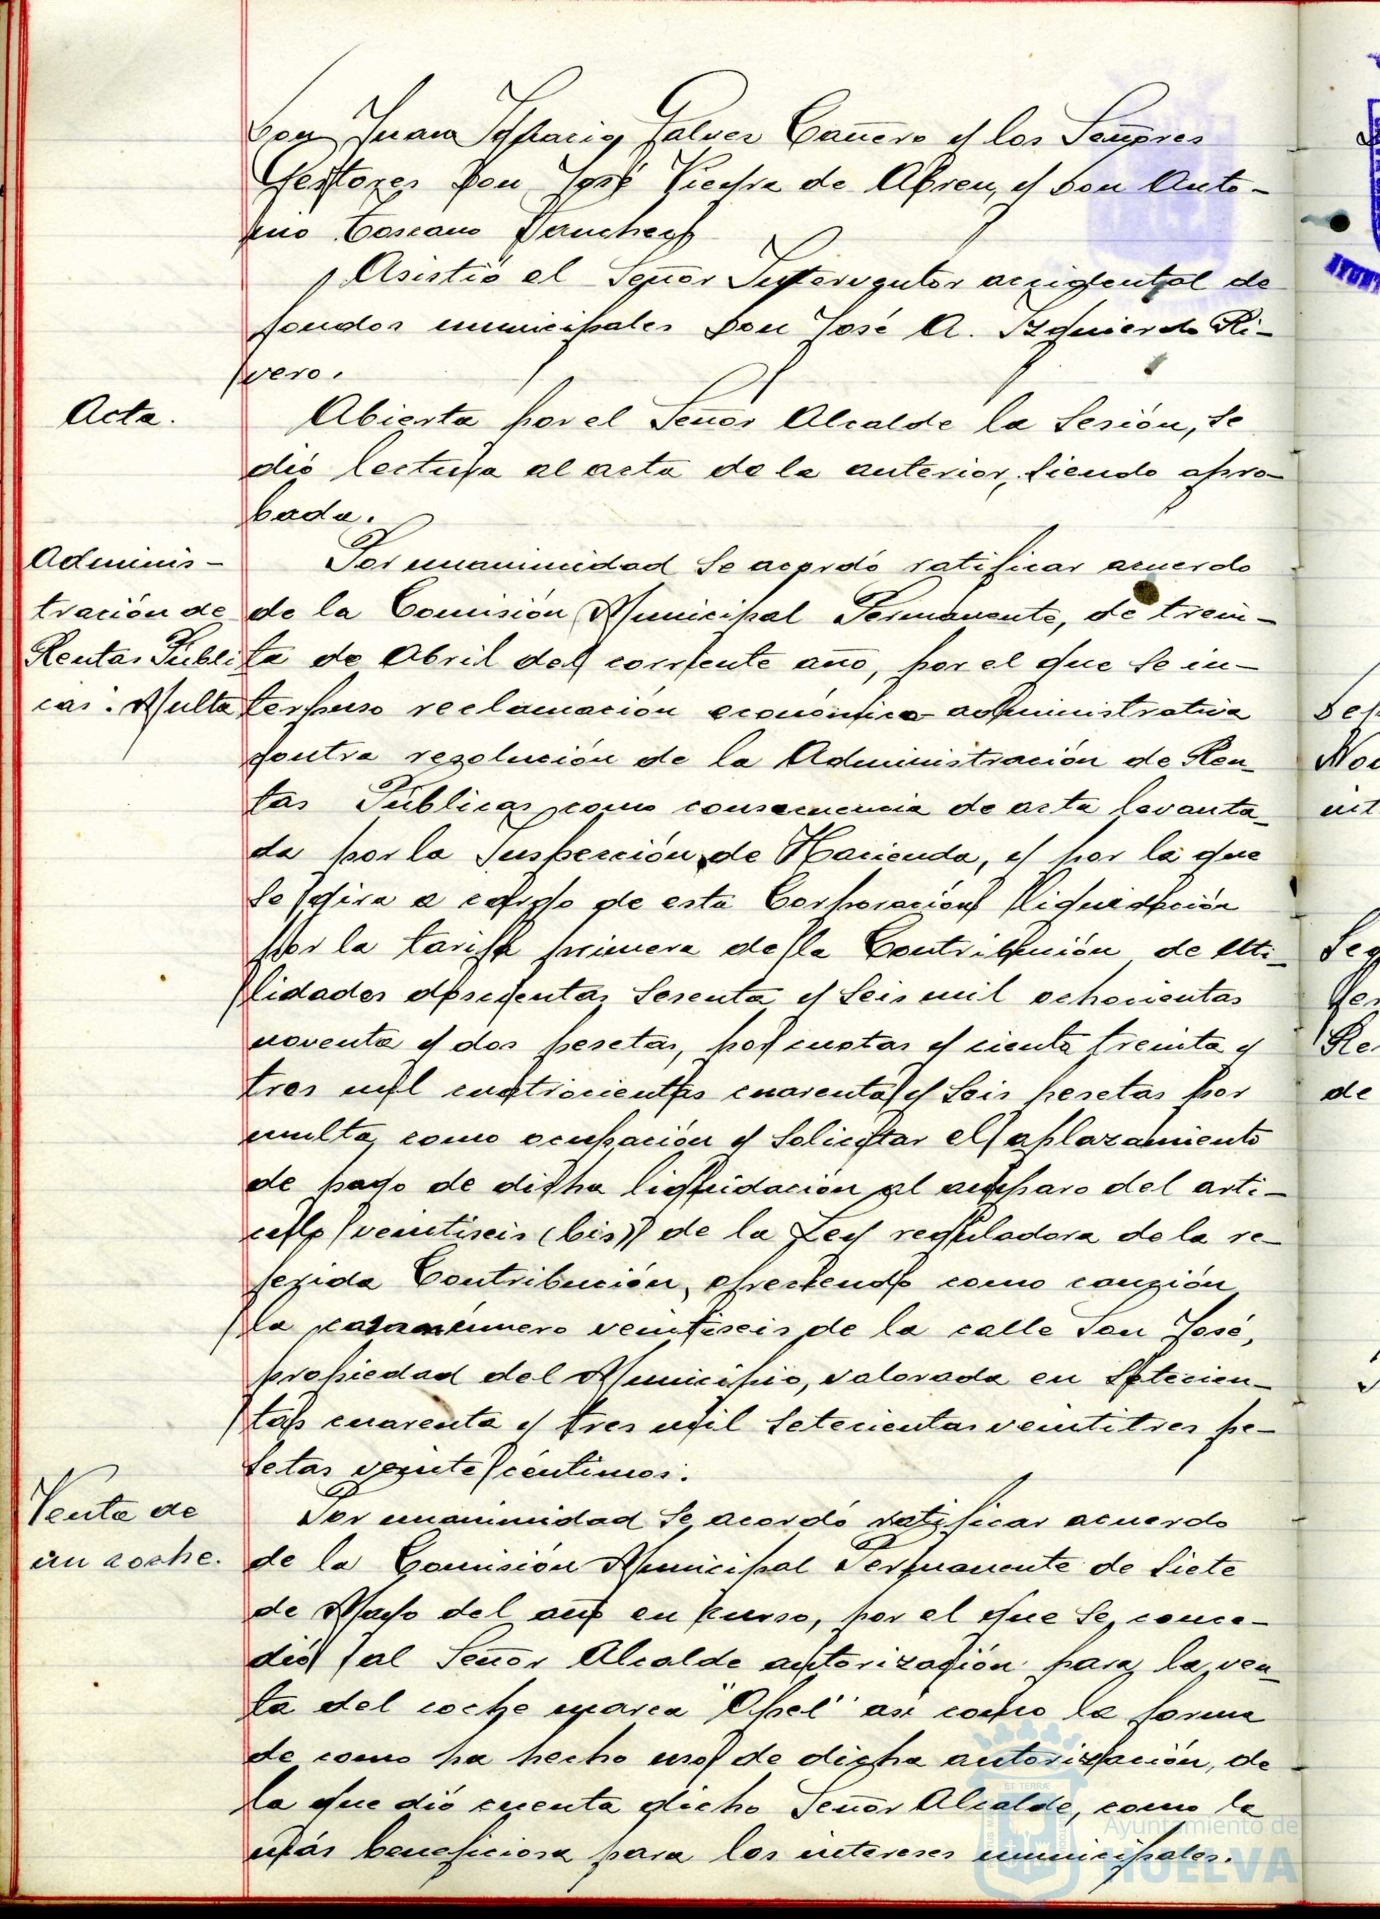 Don Juan Ignacio Galvez Cañero y los Señores
Gestores Don José Vieyra de Abreu, y Don Anto-
nio Toscano Sanchez
Asistió el Señor Interventor accidental de
fondos municipales Don José A. Izquierdo Ri-
vero.
Acta.
Abierta por el Señor Alcalde la Sesión, se
dió lectura al acta de la anterior, siendo apro-
bada.
Adminis-
tración de
Rentas Públi-
cas: Multa
Por unanimidad se acordó ratificar acuerdo
de la Comisión Municipal Permanente, de trein-
ta de Abril del corriente año, por el que se in-
terpuso reclamación económico-administrativa
contra resolución de la Administración de Ren-
tas Públicas como consecuencia de acta levanta-
da por la Inspección de Hacienda, y por la que
se gira a cargo de esta Corporación liquidación
por la tarifa primera de la Contribución de Uti-
lidades doscientas sesenta y seis mil ochocientas
noventa y dos pesetas, por cuotas y ciento treinta y
tres mil cuatrocientas cuarenta y seis pesetas por
multa, como ocupación y solicitar el aplazamiento
de pago de dicha liquidación al amparo del arti-
culo veintiseis (bis) de la Ley reguladora de la re-
ferida Contribución, ofreciendo como caución
la casa número veintiseis de la calle San José,
propiedad del Municipio, valorada en setecien-
tas cuarenta y tres mil setecientas veintitres pe-
setas veinte céntimos.
Venta de
un coche.
Por unanimidad se acordó ratificar acuerdo
de la Comisión Municipal Permanente de siete
de Mayo del año en curso, por el que se conce-
dió al Señor Alcalde autorización para la ven-
ta del coche marca "Opel" así como la forma
de como ha hecho uso de dicha autorización, de
la que dió cuenta dicho Señor Alcalde, como la
más beneficiosa para los intereses municipales.
Ayuntamiento de
HUELVA